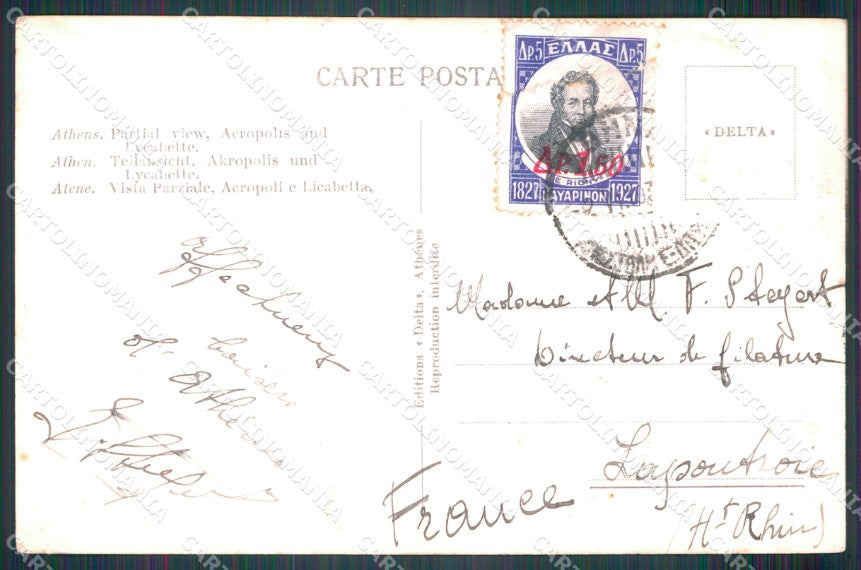 CARTE POSTA
Athens. Partial view, Acropolis and
Lycabette.
Athen. Teilansicht, Akropolis und
Lycabette.
Atene. Vista Parziale, Acropoli e Licabetta.
Editions « Delta », Athénes
Reproduction interdite
Δρ.5 ΕΛΛΑΣ Δρ.5
Δρ. 1.50
DE RIGNY
1827 ΝΑΥΑΡΙΝΟΝ 1927
« DELTA »
Affectueux
baisers
d'Athènes
Madame et M. F. Steyert
Directeur de filature
Lapoutroie
(Ht Rhin)
France
CARTOLINOMANIA